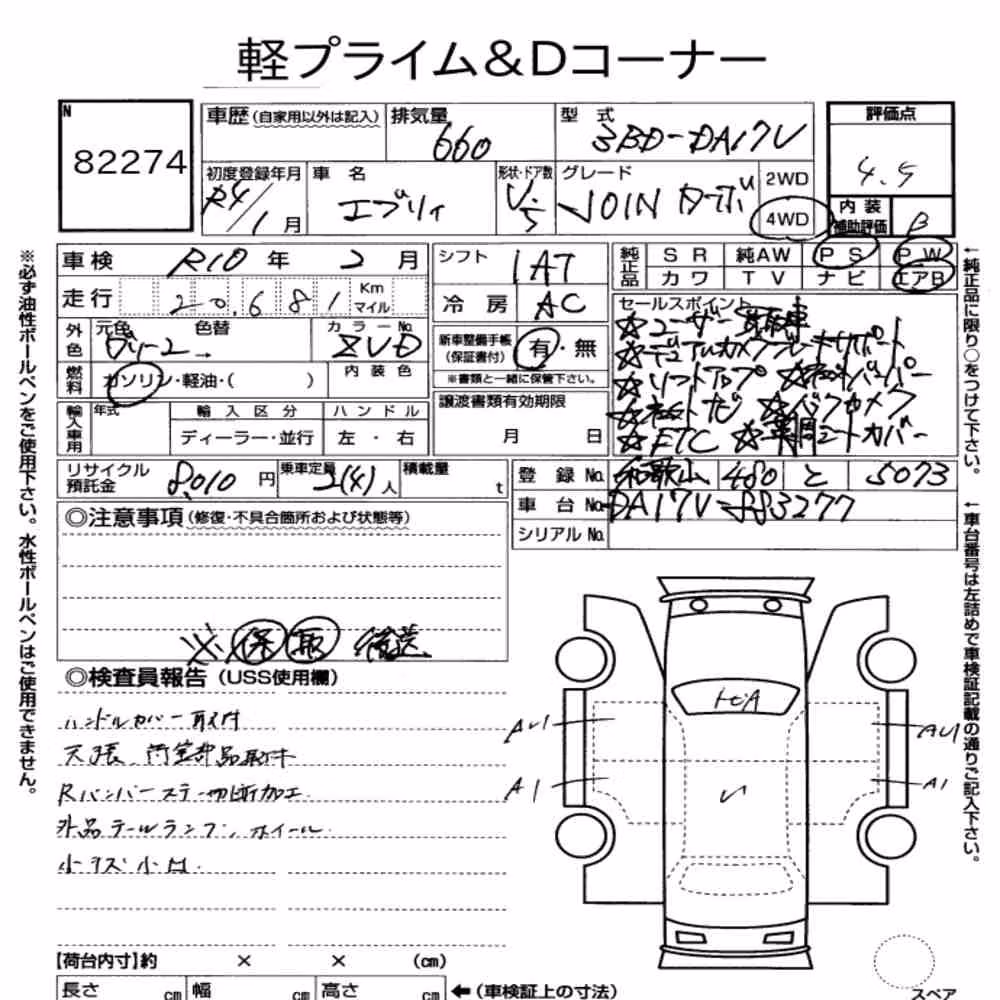 軽プライム&Dコーナー
N
82274
車歴(自家用以外は記入)
排気量 660
型式 3BD-DA17V
評価点 4.5
初度登録年月 R4/1月
車名 エブリイ
形状・ドア数 V.5
グレード JOIN ターボ
2WD
4WD
内装補助評価 B
車検 R10年 2月
走行 20,681 Km マイル
シフト IAT
冷房 AC
純正品 SR 純AW PS PW
カワ TV ナビ エアB
外色 元色 グリーン 色替 → カラーNo. ZVD
燃料 ガソリン・軽油・( ) 内装色
新車整備手帳(保証書付) 有・無
※書類と一緒に保管下さい。
セールスポイント
☆ユーザー買取車
☆デュアルカメラブレーキサポート
☆リフトアップ
☆社外ナビ ☆バックカメラ
☆ETC
輸入車用 年式 輸入区分 ハンドル
ディーラー・並行 左・右
譲渡書類有効期限
月 日
リサイクル預託金 8,010円 乗車定員 2(4)人 積載量 t
登録No. 和歌山 480 と 5073
車台No. DA17V-883277
シリアルNo.
◎注意事項(修復・不具合箇所および状態等)
※ 保 取 後送
◎検査員報告(USS使用欄)
ハンドルカバー取付
天張、荷室部品取付
Rバンパーステー切断加工
外品テールランプ、ホイール
小キズ小凹
トビA
AU1
AU1
A1
A1
【荷台内寸】約 × × (cm)
長さ cm 幅 cm 高さ cm ←(車検証上の寸法)
スペア
※必ず油性ボールペンをご使用下さい。水性ボールペンはご使用できません。
←純正品に限り○をつけて下さい。
←車台番号は左詰めで車検証記載の通りご記入下さい。